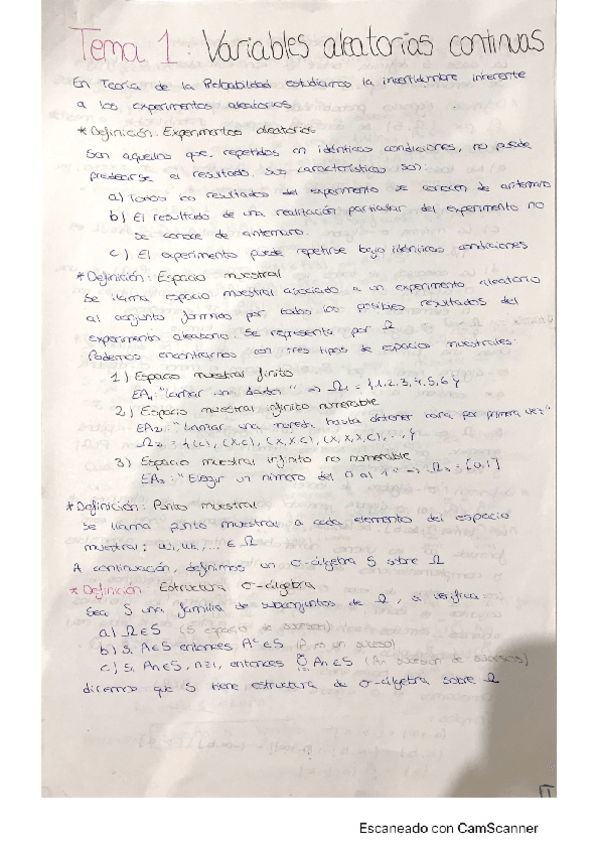 Tema 1: Variables aleatorias continuas
En Teoría de la Probabilidad estudiamos la incertidumbre inherente
a los experimentos aleatorios
* Definición: Experimentos aleatorios
Son aquellos que, repetidos en idénticas condiciones, no puede
predecirse el resultado. Sus características son:
a) Todos los resultados del experimento se conocen de antemano
b) El resultado de una realización particular del experimento no
se conoce de antemano.
c) El experimento puede repetirse bajo idénticas condiciones
* Definición: Espacio muestral
Se llama espacio muestral asociado a un experimento aleatorio
al conjunto formado por todos los posibles resultados del
experimento aleatorio. Se representa por Ω
Podemos encontrarnos con tres tipos de espacios muestrales:
1) Espacio muestral finito
EA₁: "Lanzar un dado" => Ω₁ = {1,2,3,4,5,6}
2) Espacio muestral infinito numerable
EA₂: "Lanzar una moneda hasta obtener cara por primera vez"
Ω₂ = {(c), (x,c), (x,x,c), (x,x,x,c), ...}
3) Espacio muestral infinito no numerable
EA₃: "Elegir un número del 0 al 1" => Ω₃ = [0,1]
* Definición: Punto muestral
Se llama punto muestral a cada elemento del espacio
muestral: ∈ Ω
A continuación, definimos un σ-álgebra S sobre Ω
* Definición Estructura σ-álgebra
Sea S una familia de subconjuntos de Ω, si verifica:
a) Ω∈S (S espacio de sucesos)
b) Si A∈S entonces Aᶜ∈S (A es un suceso)
c) Si An∈S, n≥1, entonces ∪ An∈S (An sucesión de sucesos)
diremos que S tiene estructura de σ-álgebra sobre Ω
Escaneado con CamScanner